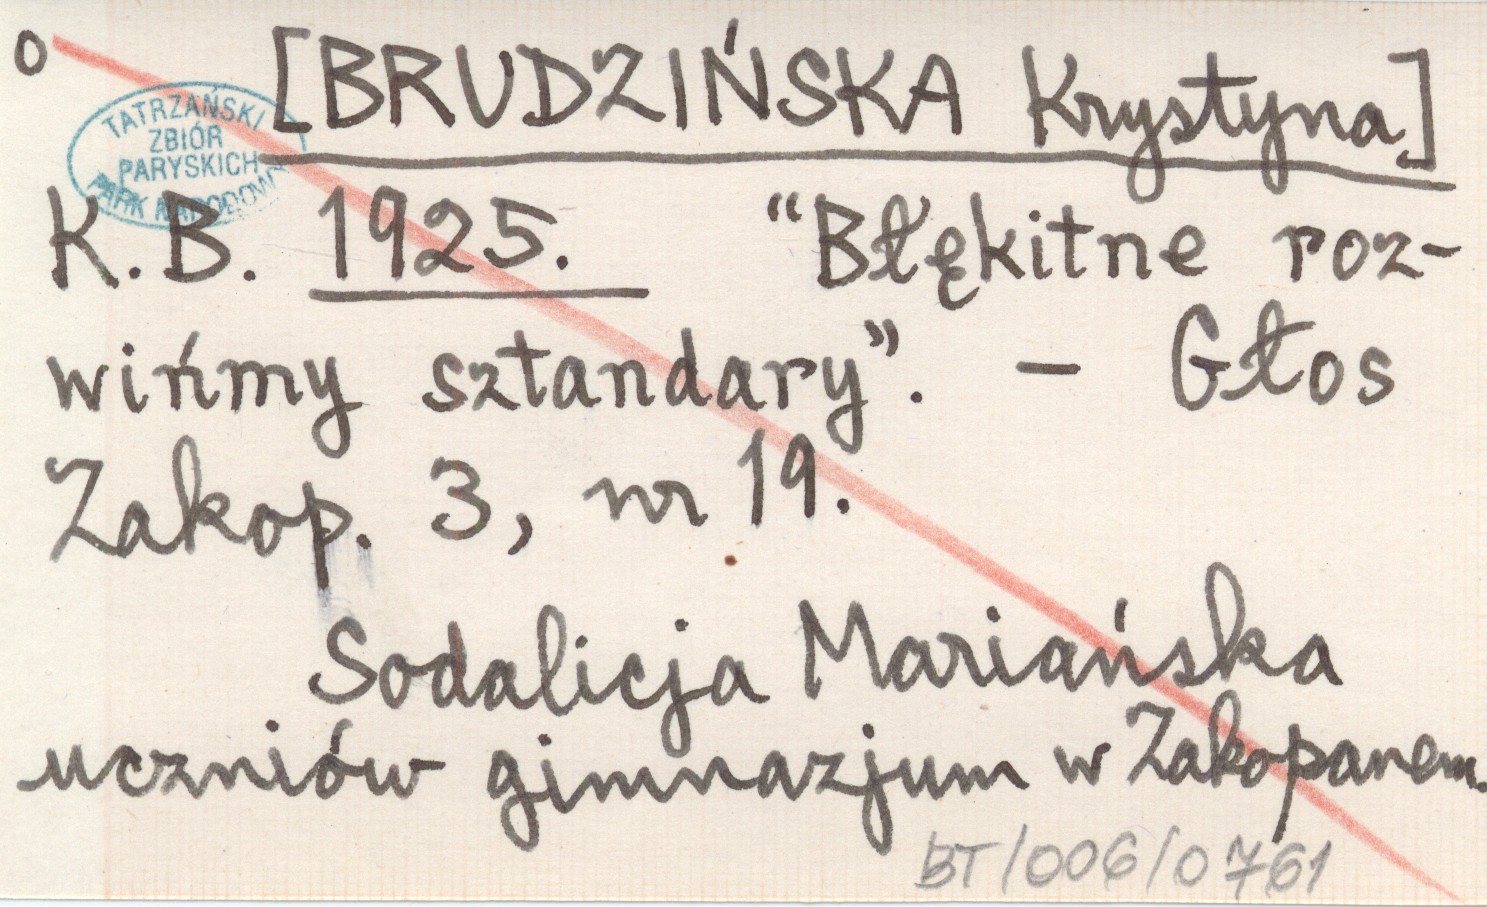 o [BRUDZIŃSKA Krystyna]
TATRZAŃSKI
ZBIÓR
PARYSKICH
PARK NARODOWY
K. B. 1925. “Błękitne roz-
wińmy sztandary”. – Głos
Zakop. 3, nr 19.
Sodalicja Mariańska
uczniów gimnazjum w Zakopanem.
BT/006/0761